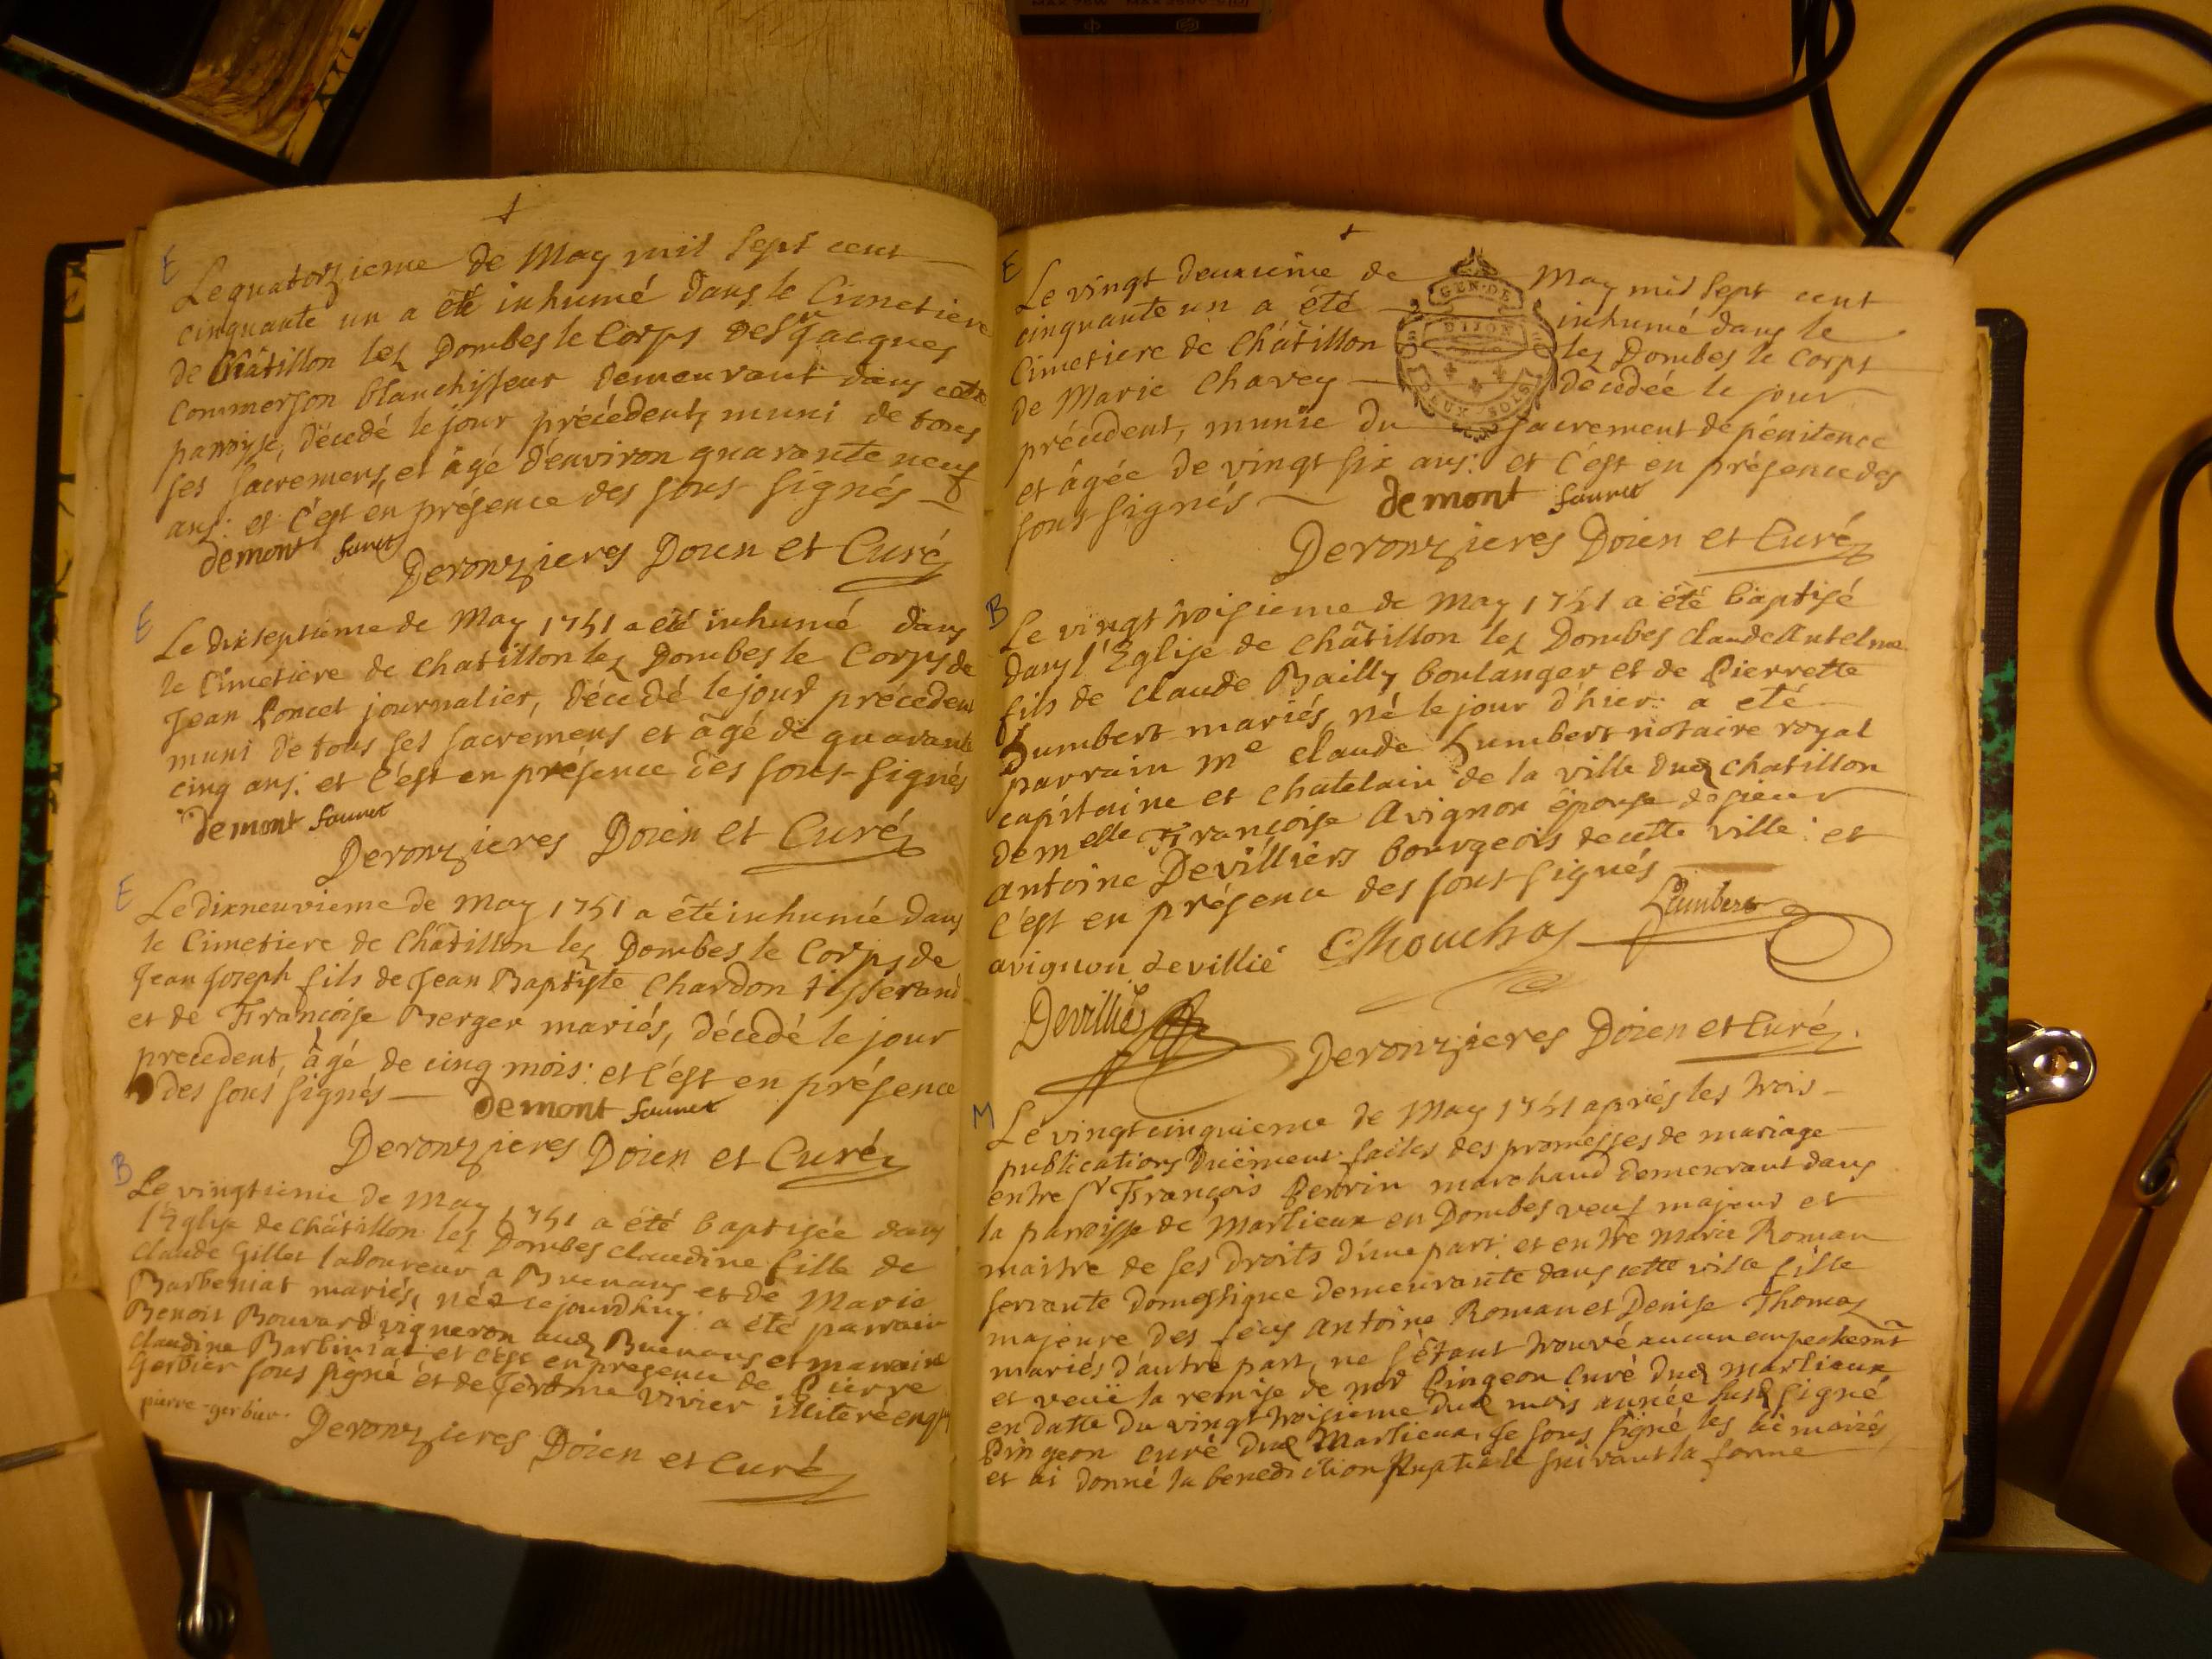 E
Le quatorzieme de May mil sept cent
cinquante un a été inhumé dans le Cimetiere
de Châtillon lez Dombes le Corps de Sr Jacques
Commerson blanchisseur demeurant dans cette
paroisse, décedé le jour précédent, muni de tous
ses sacremens, et âgé d'environ quarante neuf
ans: et c'est en présence des sous-signés
demont faunet
Deronzieres Doien et Curé
E
Le dixseptieme de May 1751 a été inhumé dans
le Cimetiere de Chatillon lez Dombes le Corps de
Jean Poncet journalier, décedé le jour précedent
muni de tous ses sacremens et âgé de quarante
cinq ans: et c'est en présence des sous-signés
demont faunet
Deronzieres Doien et Curé
E
Le dixneuvieme de May 1751 a été inhumé dans
le Cimetiere de Châtillon lez Dombes le Corps de
Jean Joseph fils de Jean Baptiste Chardon tisserand
et de Françoise Berger mariés, décedé le jour
precedent, âgé de cinq mois: et c'est en présence
des sous signés demont faunet
Deronzieres Doien et Curé
B
Le vingtieme de May 1751 a été baptisée dans
l'Eglise de Châtillon lez Dombes claudine fille de
Claude Gillet laboureur a Buenans et de Marie
Barbeniat mariés, née le jourdhuy: a été parrain
Benoit Bouvard vigneron aud Buenans et marraine
Claudine Barbiniat: et c'est en presence de Pierre
Gerbier sous signé et de Jérôme vivier illiteré enqs
pierre-gerbier.
Deronzieres Doien et Curé
E
Le vingt deuxieme de May mil sept cent
cinquante un a été inhumé dans le
Cimetiere de Châtillon lez Dombes le Corps
de Marie Chavey décedée le jour
précédent, munie du sacrement de pénitence
et âgée de vingt six ans: et c'est en présence des
sous signés demont faunet
Deronzieres Doien et Curé
GEN. DE
DIJON
DEUX SOLS
B
Le vingt troisieme de May 1751 a été baptisé
dans l'Eglise de Châtillon lez Dombes claude Antelme
fils de Claude Bailly boulanger et de Pierrette
Humbert mariés, né le jour d'hier: a eté
parrain Me claude Humbert notaire royal
capitaine et chatelain de la ville dud chatillon
demelle Françoise Avignon épouse de sieur
Antoine Devilliers bourgeois de cette ville: et
c'est en présence des sous signés
avignon devillié CMouchas Humbert
Devillié
Deronzieres Doien et Curé
M
Le vingt cinquieme de May 1751 après les trois
publications duëment faites des promesses de mariage
entre Sr François Perrin marchand demeurant dans
la paroisse de Marlieux en Dombes veuf majeur et
maitre de ses droits d'une part: et entre Marie Roman
servante domestique demeurante dans cette ville fille
majeure des feus Antoine Roman et Denise Thomas
mariés d'autre part, ne s'étant trouvé aucun empechemt
et veuë la remise de mod Pingeon Curé dud Marlieux
en datte du vingt troisieme dud mois année susd signé
Pingeon curé dud Marlieux, Je sous signé les ai mariés
et ai donné la benediction Nuptiale suivant la forme